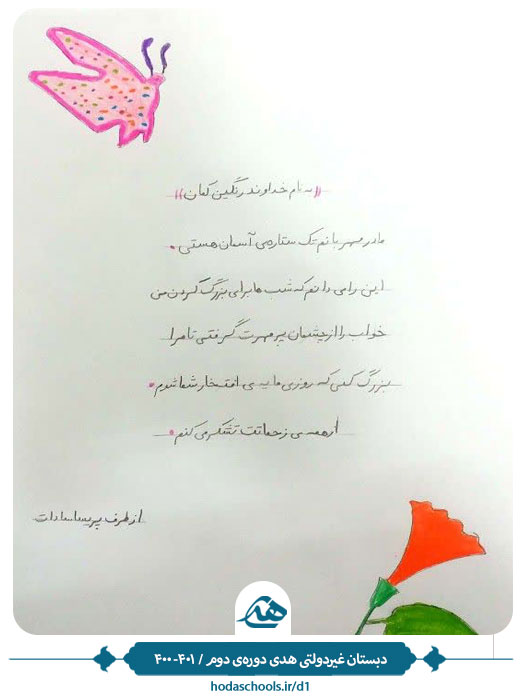 «به نام خداوند رنگین کمان»
مادر مهربانم تک ستاره‌ی آسمان هستی.
این را می دانم که شب ها برای بزرگ کردن من
خواب را از چشمان پر مهرت گرفتی تا مرا
بزرگ کنی که روزی مایه ی افتخار شما شوم.
از همه ی زحماتت تشکر می کنم.
از طرف پریسا سادات
هدی
دبستان غیردولتی هدی دوره‌ی دوم / ۴۰۱-۴۰۰
hodaschools.ir/d1